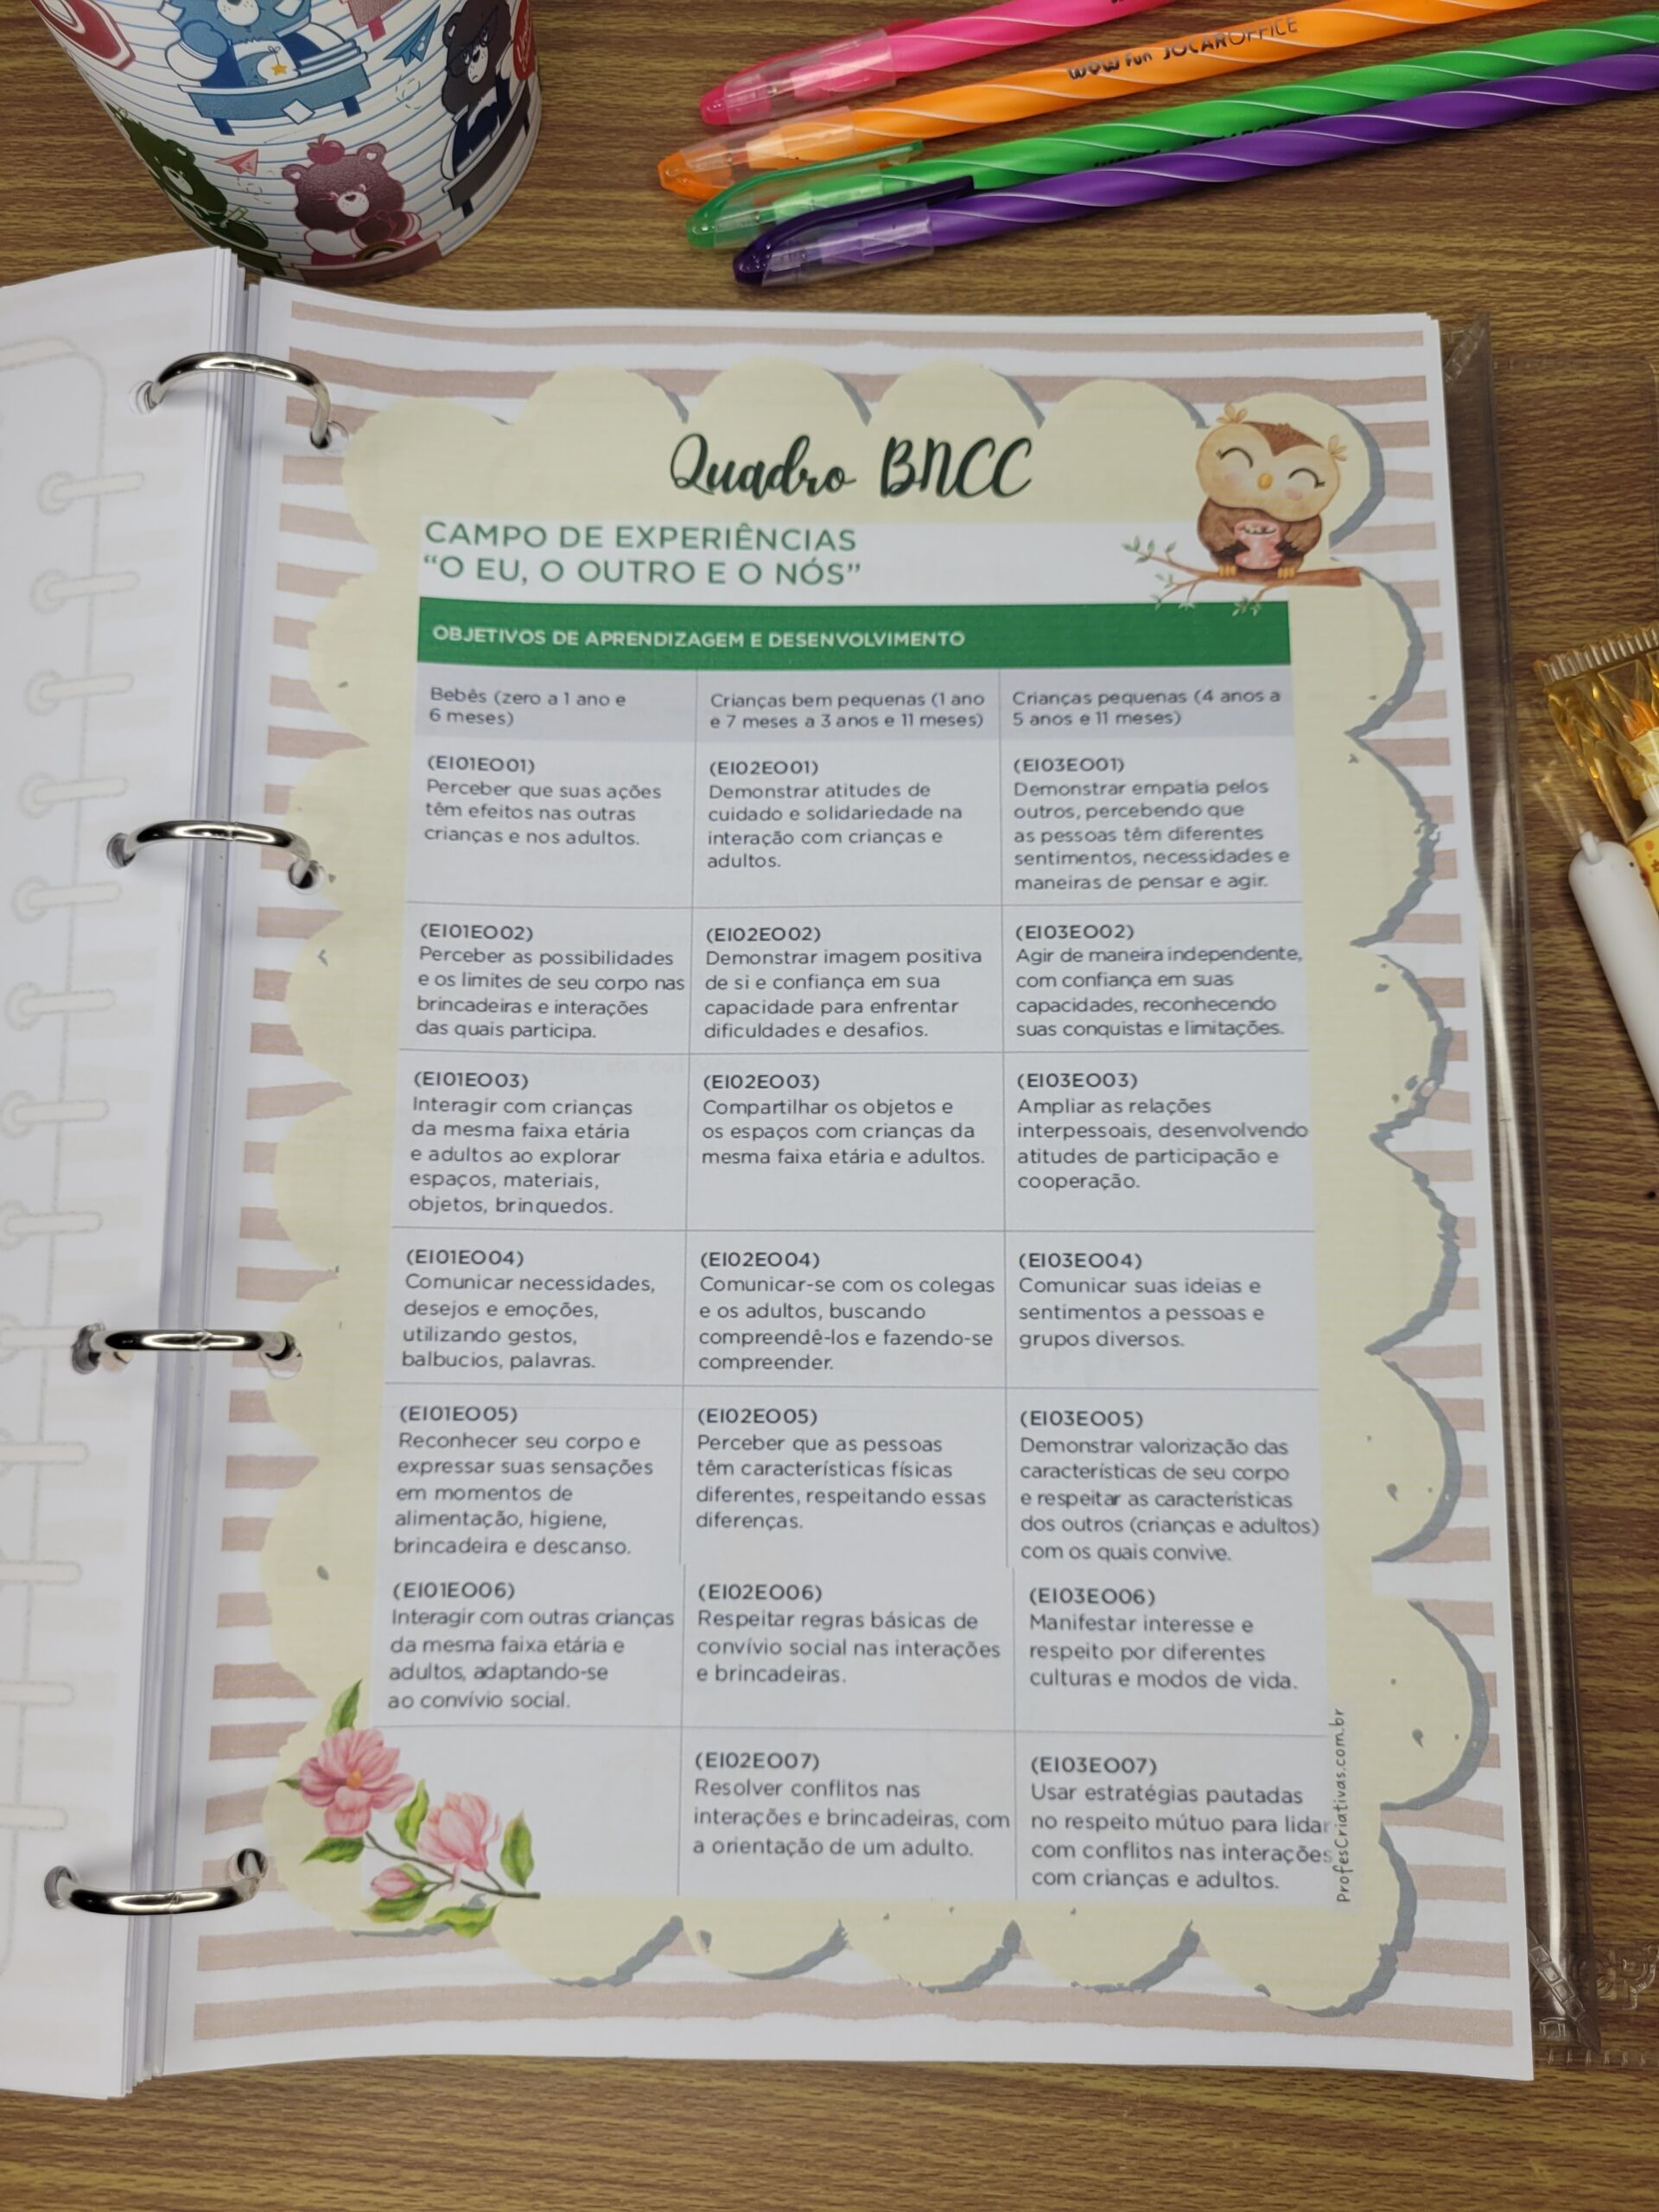 WOW Fun JOCAROFFICE
Quadro BNCC
CAMPO DE EXPERIÊNCIAS
“O EU, O OUTRO E O NÓS”
OBJETIVOS DE APRENDIZAGEM E DESENVOLVIMENTO
Bebês (zero a 1 ano e
6 meses)
Crianças bem pequenas (1 ano
e 7 meses a 3 anos e 11 meses)
Crianças pequenas (4 anos a
5 anos e 11 meses)
(EI01EO01)
Perceber que suas ações
têm efeitos nas outras
crianças e nos adultos.
(EI02EO01)
Demonstrar atitudes de
cuidado e solidariedade na
interação com crianças e
adultos.
(EI03EO01)
Demonstrar empatia pelos
outros, percebendo que
as pessoas têm diferentes
sentimentos, necessidades e
maneiras de pensar e agir.
(EI01EO02)
Perceber as possibilidades
e os limites de seu corpo nas
brincadeiras e interações
das quais participa.
(EI02EO02)
Demonstrar imagem positiva
de si e confiança em sua
capacidade para enfrentar
dificuldades e desafios.
(EI03EO02)
Agir de maneira independente,
com confiança em suas
capacidades, reconhecendo
suas conquistas e limitações.
(EI01EO03)
Interagir com crianças
da mesma faixa etária
e adultos ao explorar
espaços, materiais,
objetos, brinquedos.
(EI02EO03)
Compartilhar os objetos e
os espaços com crianças da
mesma faixa etária e adultos.
(EI03EO03)
Ampliar as relações
interpessoais, desenvolvendo
atitudes de participação e
cooperação.
(EI01EO04)
Comunicar necessidades,
desejos e emoções,
utilizando gestos,
balbucios, palavras.
(EI02EO04)
Comunicar-se com os colegas
e os adultos, buscando
compreendê-los e fazendo-se
compreender.
(EI03EO04)
Comunicar suas ideias e
sentimentos a pessoas e
grupos diversos.
(EI01EO05)
Reconhecer seu corpo e
expressar suas sensações
em momentos de
alimentação, higiene,
brincadeira e descanso.
(EI02EO05)
Perceber que as pessoas
têm características físicas
diferentes, respeitando essas
diferenças.
(EI03EO05)
Demonstrar valorização das
características de seu corpo
e respeitar as características
dos outros (crianças e adultos)
com os quais convive.
(EI01EO06)
Interagir com outras crianças
da mesma faixa etária e
adultos, adaptando-se
ao convívio social.
(EI02EO06)
Respeitar regras básicas de
convívio social nas interações
e brincadeiras.
(EI03EO06)
Manifestar interesse e
respeito por diferentes
culturas e modos de vida.
(EI02EO07)
Resolver conflitos nas
interações e brincadeiras, com
a orientação de um adulto.
(EI03EO07)
Usar estratégias pautadas
no respeito mútuo para lidar
com conflitos nas interações
com crianças e adultos.
ProfesCriativas.com.br